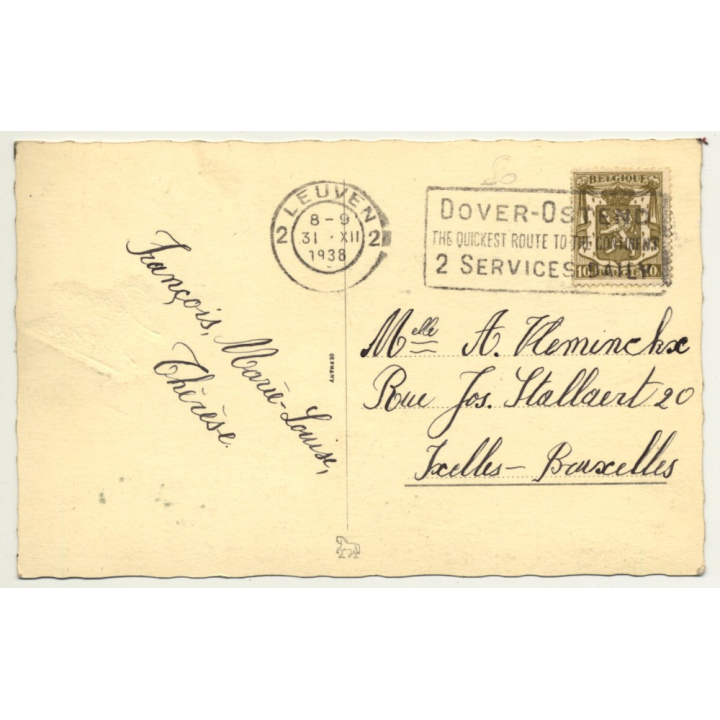 LEUVEN
2 8-9 2
31 · XII
1938
DOVER-OSTEND
THE QUICKEST ROUTE TO THE CONTINENT
2 SERVICES DAILY
BELGIQUE
10 10
François, Marie-Louise,
Thérèse.
GERMANY
Melle A. Vleminckx
Rue Jos. Stallaert 20
Ixelles - Bruxelles